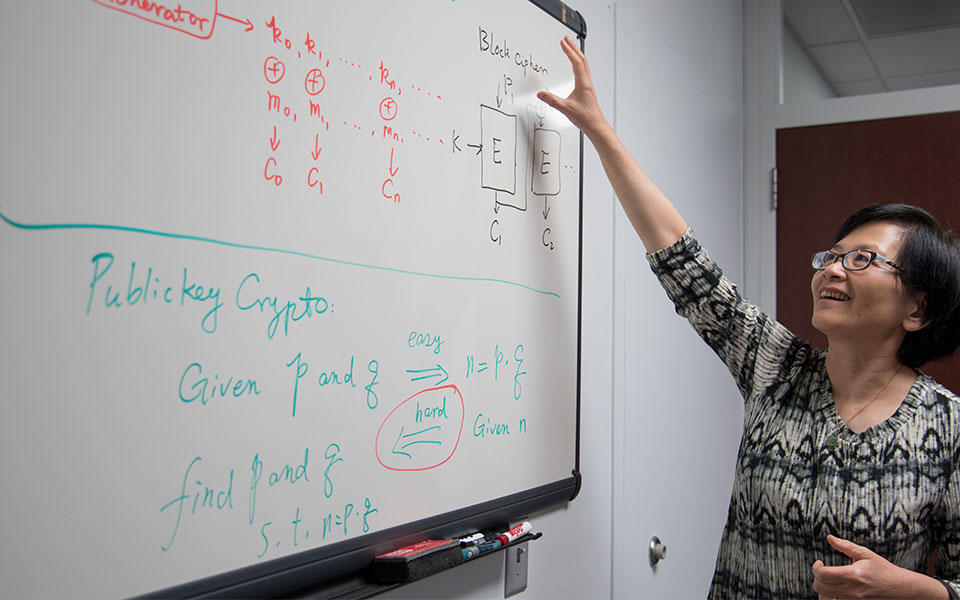 Generator
k₀, k₁, ..... kₙ, ....
+ + +
m₀, m₁, ..... mₙ, .....
↓ ↓ ↓
C₀ C₁ Cₙ
Block cipher
P₁
K → E E ...
C₁ C₂
Public key Crypto:
Given p and q easy ⇒ n = p · q
hard ⇐ Given n
find p and q
s.t. n=p·q
EXPO